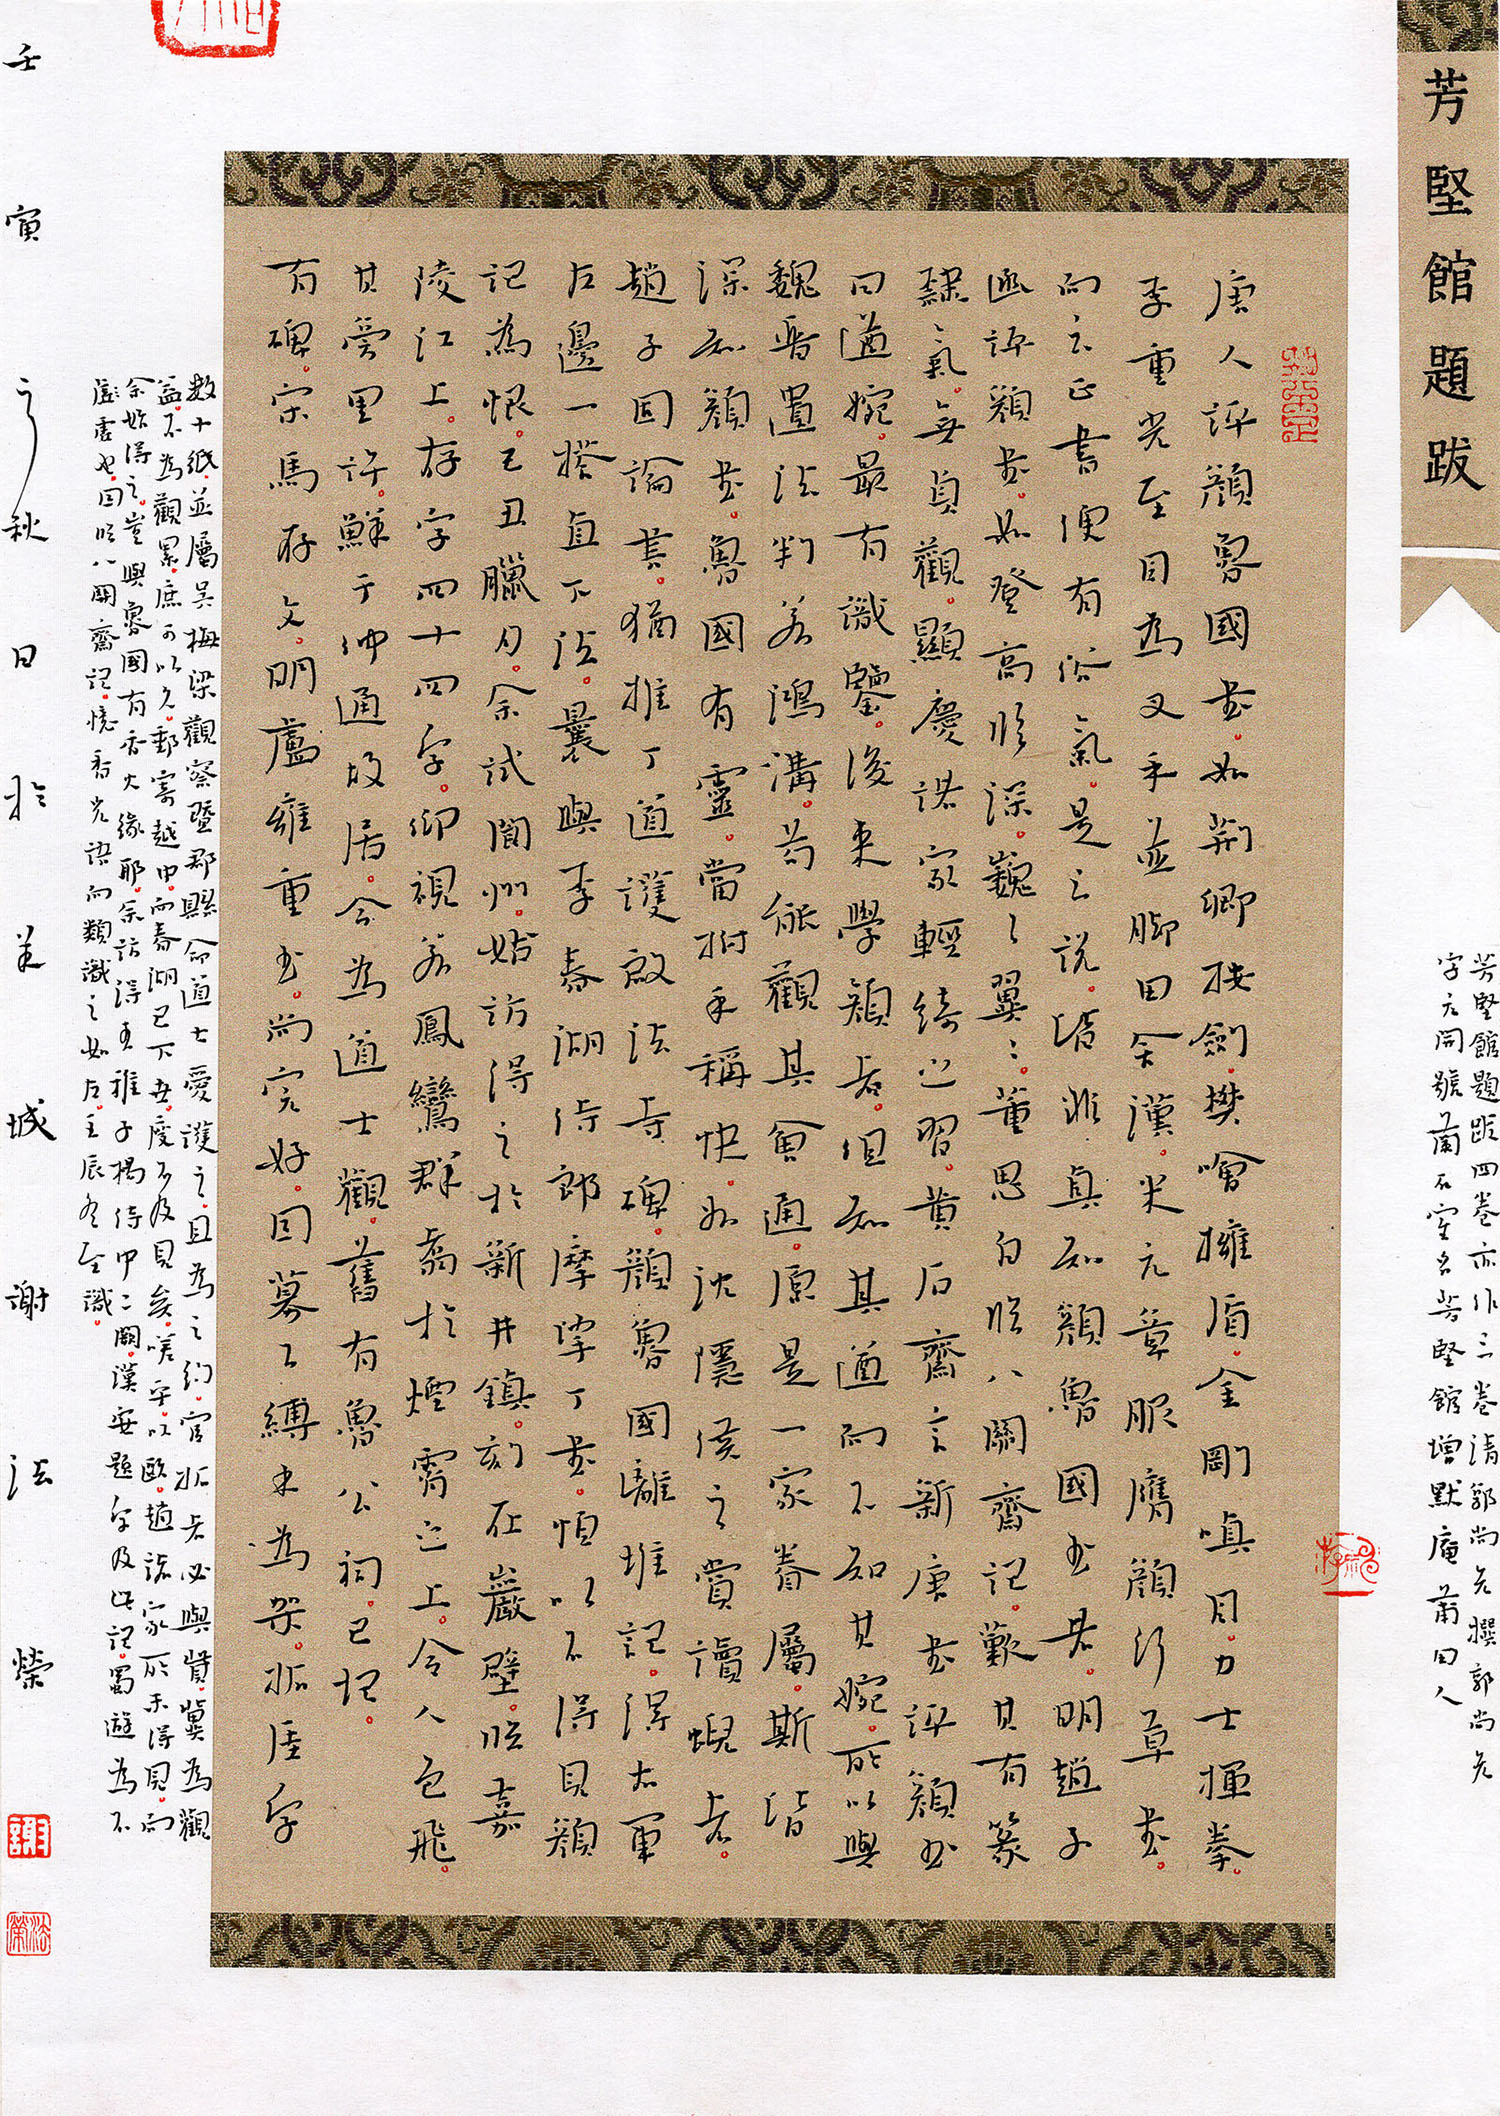 芳堅館題跋
芳堅館題跋四卷亦作三卷清郭尚先撰郭尚先
字元開號蘭石室名芳堅館增默庵莆田人
唐人評顏魯國書如荊卿按劍樊噲擁盾金剛嗔目力士揮拳
李重光至目為叉手並腳田舍漢米元章服膺顏行草書
而云正書便有俗氣是之說皆非真知顏魯國書者明趙子
函評顏書如登高臨深巍巍翼翼董思白臨八關齋記歎其有篆
隸氣無員觀顯慶諸家輕綺之習黃石齋言新唐書評顏書
曰遒婉最有識鑒後來學顏者但知其遒而不知其婉所以與
魏晉置法判若鴻溝苟能觀其會通原是一家眷屬斯皆
深知顏書魯國有靈當拊手稱快如沈隱侯之賞讀蜺者
趙子固論書猶推丁道護啟法寺碑顏魯國離堆記得右軍
左邊一搭直下法曩與李春湖侍郎摩挲丁書恒以不得見顏
記為恨己丑臘月余試閬州始訪得之於新井鎮刻在巖壁臨嘉
陵江上存字四十四字仰視若鳳鸞群翥於煙霄之上令人色飛
其旁里許鮮于仲通故居今為道士觀舊有魯公祠已圮
有碑宋馬存文明盧雍重書尚完好因募工縛木為架拓厓字
數十紙並屬吳梅梁觀察暨郡縣命道士愛護之且為之約官拓者必與貲冀為觀
益不為觀累庶可以久郵寄越中而春湖已下世度不及見矣嗟乎以歐趙諸家所未得見而
余始得之豈與魯國有香火緣耶余訪得王稚子楊侍中二闕漢安題字及此記蜀遊為不
虛虛也因臨八關齋記憶香光語而類識之如左壬辰冬至識
壬寅之秋日於羊城謝法榮